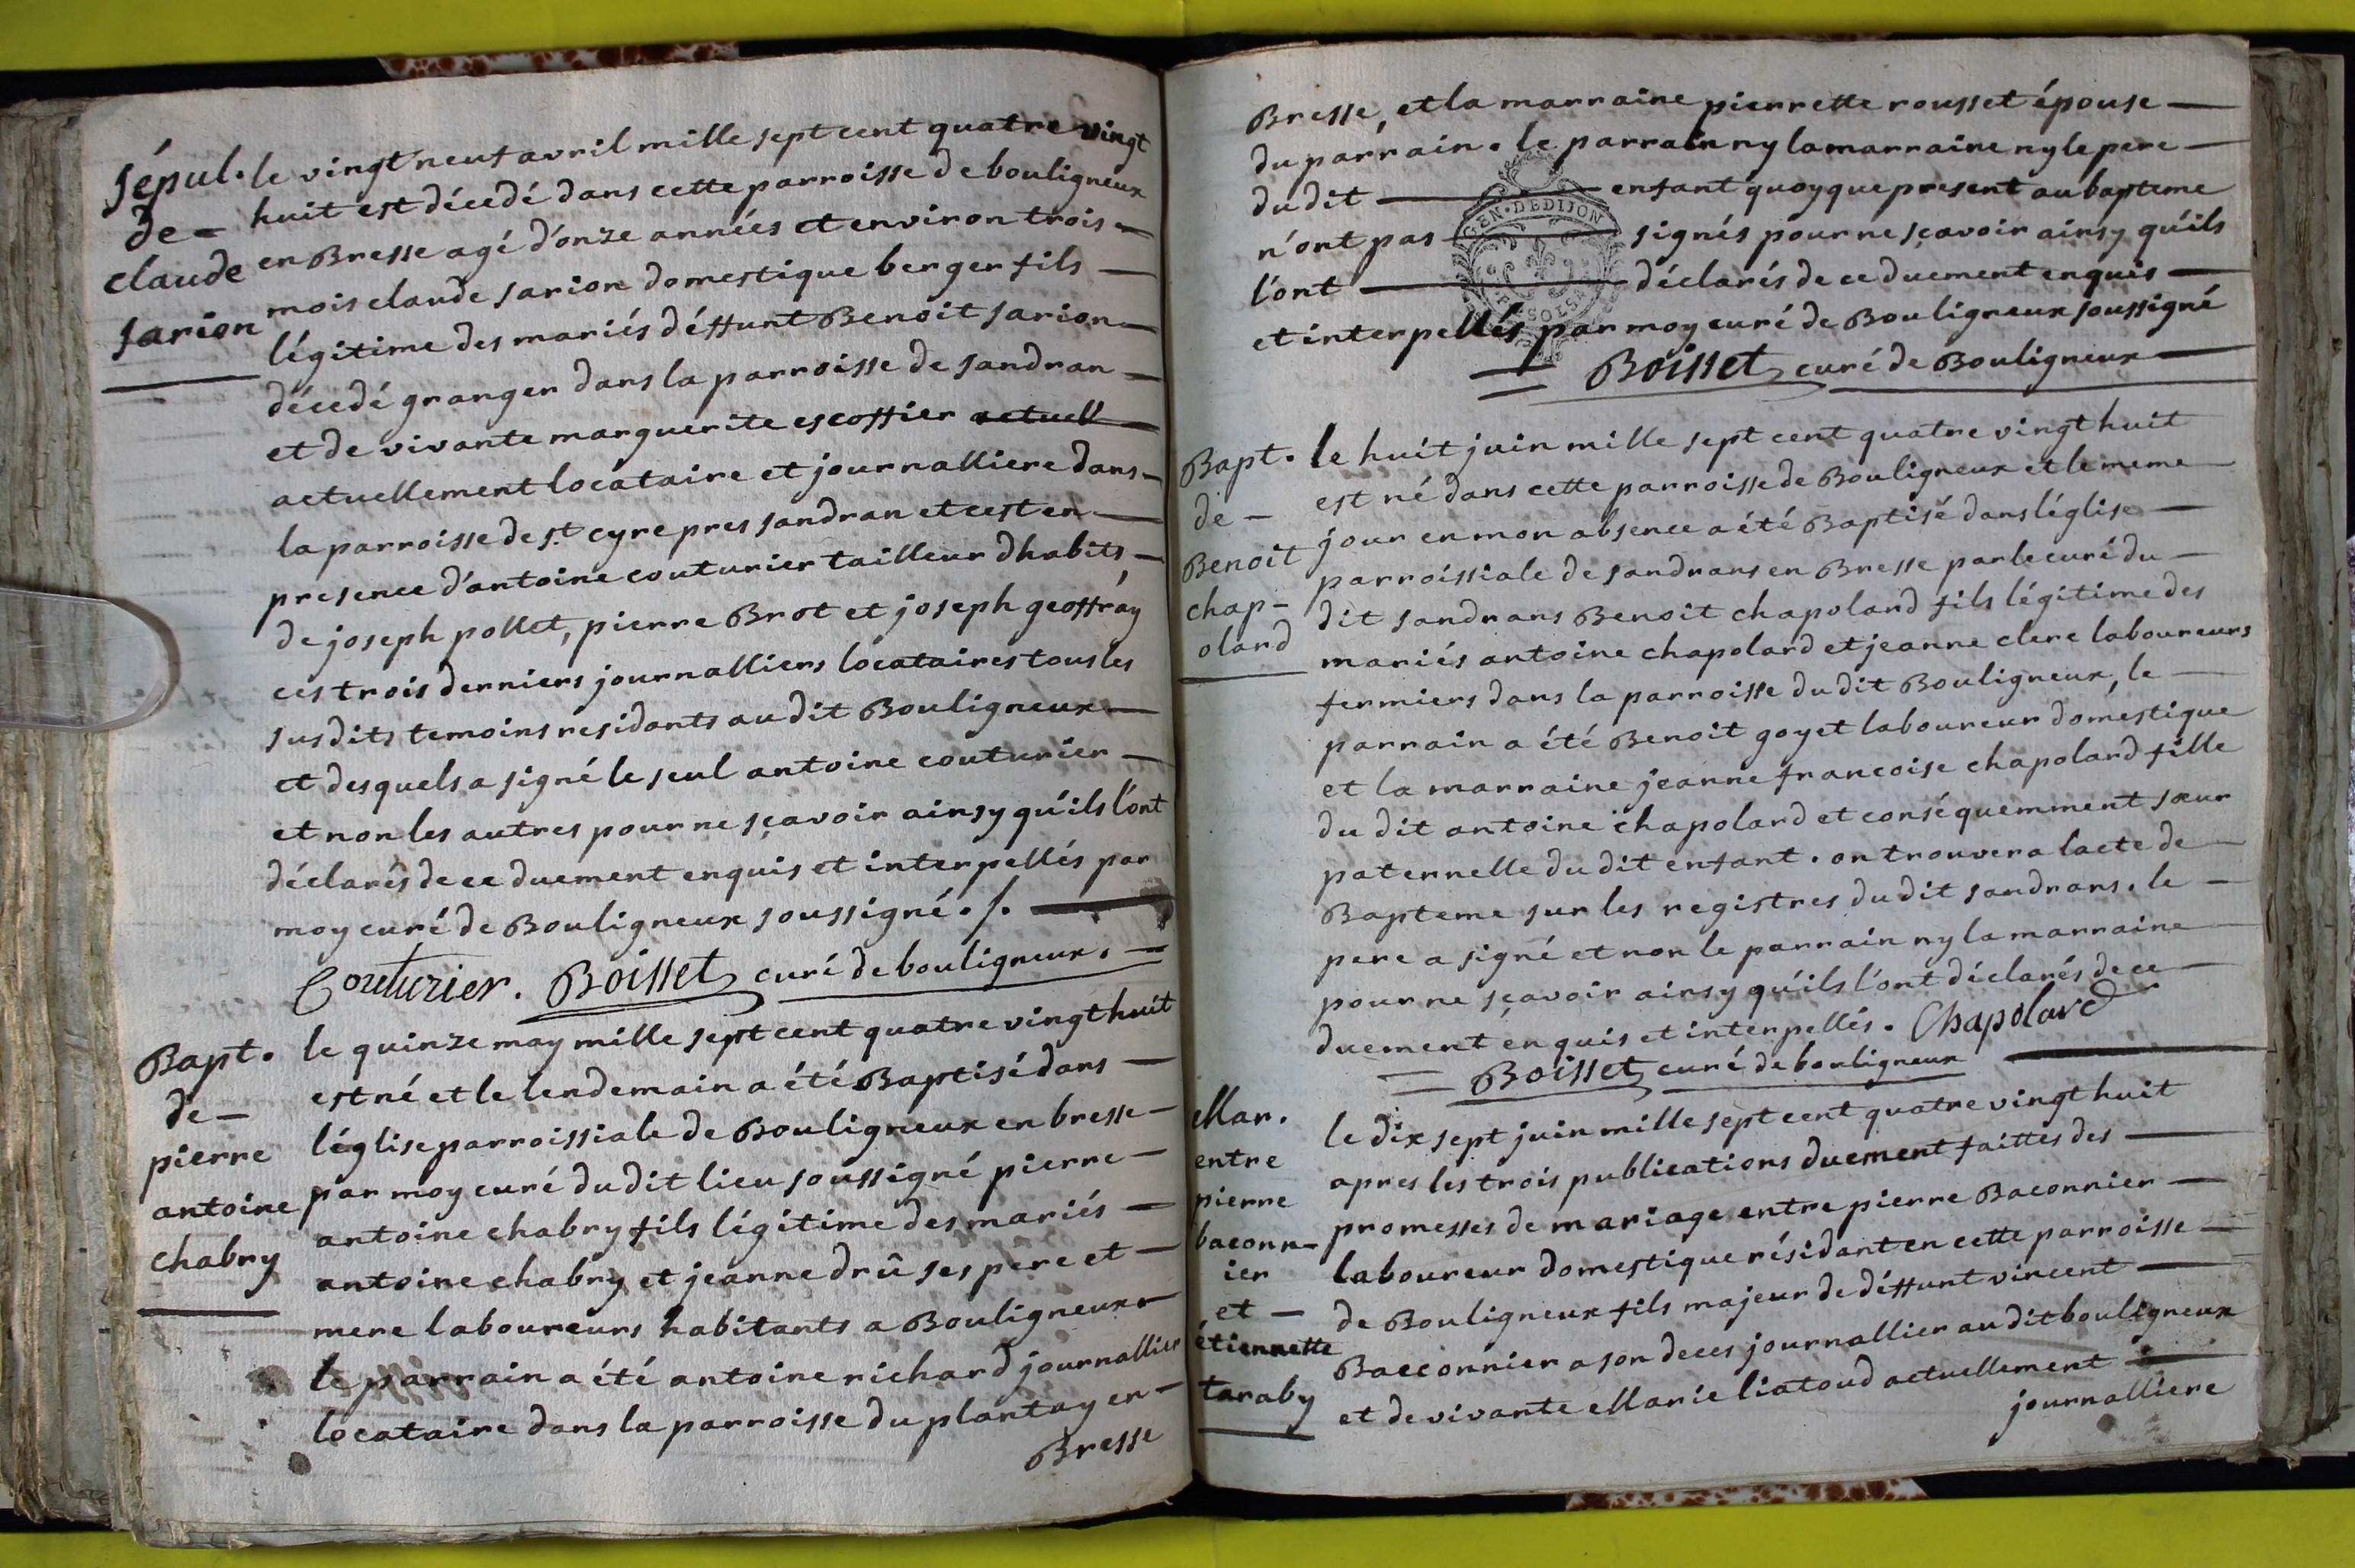 sépul.
de -
claude
sarion
le vingt neuf avril mille sept cent quatre vingt
huit est décedé dans cette parroisse de bouligneux
en Bresse agé d'onze années et environ trois
mois claude sarion domestique berger fils
légitime des mariés déffunt Benoit sarion
décedé granger dans la parroisse de sandran
et de vivante marguerite escoffier actuell
actuellement locataire et journalliere dans
la parroisse de st cyre pres sandran et cest en
presence d'antoine couturier tailleur dhabits,
de joseph pollet, pierre Brot et joseph geoffray
ces trois derniers journalliers locataires tous les
susdits temoins residants au dit Bouligneux
et desquels a signé le seul antoine couturier
et non les autres pour ne sçavoir ainsy qu'ils l'ont
déclarés de ce duement enquis et interpellés par
moy curé de Bouligneux soussigné ./.
Couturier. Boisset curé de bouligneux.
Bapt.
de -
pierre
antoine
chabry
le quinze may mille sept cent quatre vingt huit
est né et le lendemain a été Baptisé dans
léglise parroissiale de Bouligneux en bresse
par moy curé dudit lieu soussigné pierre
antoine chabry fils légitime des mariés
antoine chabry et jeanne drû ses pere et
mere laboureurs habitants a Bouligneux
le parrain a été antoine richard journallier
locataire dans la parroisse du plantay en
Bresse
Bresse, et la marraine pierrette rousset épouse
du parrain. le parrain ny la marraine ny le pere
du dit enfant quoyque present au bapteme
n'ont pas signés pour ne sçavoir ainsy qu'ils
l'ont déclarés de ce duement enquis
et interpellés par moy curé de Bouligneux soussigné
GEN. DE DIJON
Boisset curé de Bouligneux
Bapt.
de -
Benoit
chap-
olard
le huit juin mille sept cent quatre vingt huit
est né dans cette parroisse de Bouligneux et le meme
jour en mon absence a été Baptisé dans léglise
parroissiale de sandrans en Bresse par le curé du
dit sandrans Benoit chapolard fils légitime des
mariés antoine chapolard et jeanne clerc laboureurs
fermiers dans la parroisse du dit Bouligneux, le
parrain a été Benoit goyet laboureur domestique
et la marraine jeanne francoise chapolard fille
du dit antoine chapolard et conséquemment sœur
paternelle du dit enfant. on trouvera lacte de
Bapteme sur les registres du dit sandrans. le
pere a signé et non le parrain ny la marraine
pour ne sçavoir ainsy qu'ils l'ont déclarés de ce
duement enquis et interpellés. Chapolard
Boisset curé de bouligneux
Mar.
entre
pierre
baconn-
ier
et -
étiennette
taraby
le dix sept juin mille sept cent quatre vingt huit
apres les trois publications duement faittes des
promesses de mariage entre pierre Baconnier
laboureur domestique résidant en cette parroisse
de Bouligneux fils majeur de déffunt vincent
Bacconnier a son deces journallier au dit bouligneux
et de vivante Marie liatoud actuellement
journalliere